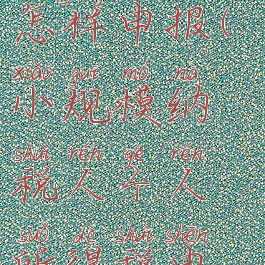 怎样申报(
xiǎo guī mó nà
小规模纳
shuì rén gè rén
税人个人
suǒ dé shuì shēn
所得税申